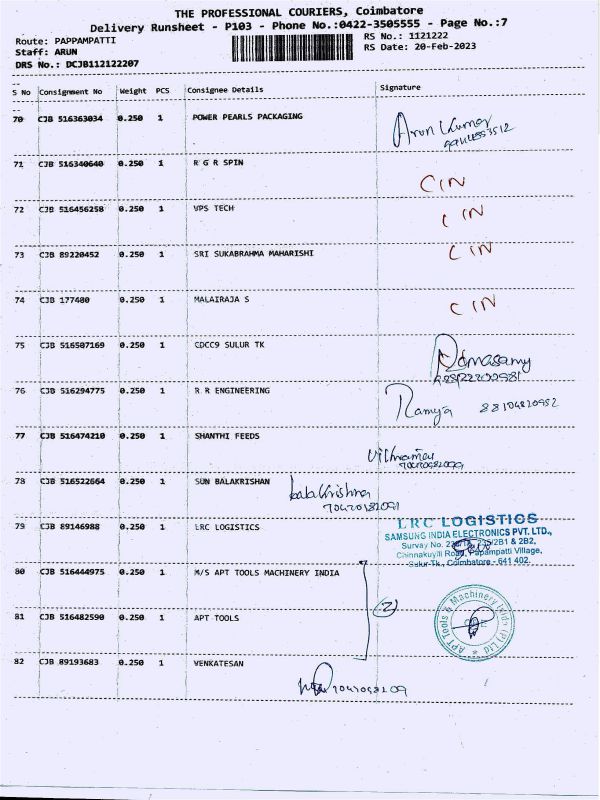 THE PROFESSIONAL COURIERS, Coimbatore
Delivery Runsheet - P103 - Phone No.:0422-3505555 - Page No.:7
Route: PAPPAMPATTI RS No.: 1121222
Staff: ARUN RS Date: 20-Feb-2023
DRS No.: DCJB112122207
S No Consignment No Weight PCS Consignee Details Signature
70 CJB 516363034 0.250 1 POWER PEARLS PACKAGING Arun Kumar
71 CJB 516340640 0.250 1 R G R SPIN CIN
72 CJB 516456258 0.250 1 VPS TECH CIN
73 CJB 89220452 0.250 1 SRI SUKABRAHMA MAHARISHI CIN
74 CJB 177400 0.250 1 MALAIRAJA S CIN
75 CJB 516507169 0.250 1 CDCC9 SULUR TK Ramasamy
76 CJB 516294775 0.250 1 R R ENGINEERING Ramya
77 CJB 516474210 0.250 1 SHANTHI FEEDS
78 CJB 516522664 0.250 1 SUN BALAKRISHAN balakrishna
79 CJB 89146988 0.250 1 LRC LOGISTICS LRC LOGISTICS
SAMSUNG INDIA ELECTRONICS PVT. LTD.,
Survay No. 2B1 & 2B2,
Chinnakuyili Road, Papampatti Village,
Sulur-Tk., Coimbatore - 641 402.
80 CJB 516444975 0.250 1 M/S APT TOOLS MACHINERY INDIA
(2)
81 CJB 516482590 0.250 1 APT TOOLS APT Tools & Machinery India (P) Ltd
82 CJB 89193683 0.250 1 VENKATESAN